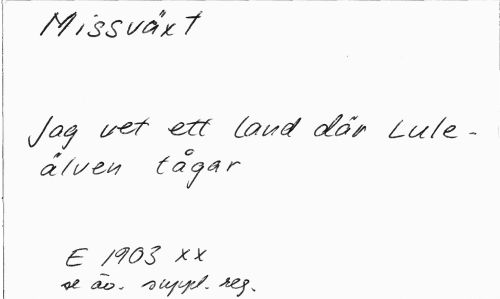 Missväxt
Jag vet ett land där Lule-
älven tågar
E 1903 xx
se äv. suppl. reg.